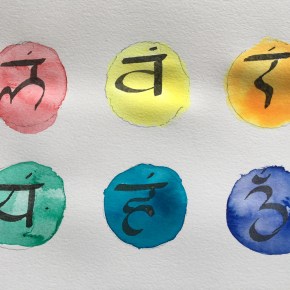 लं वं रं
यं हं ॐ